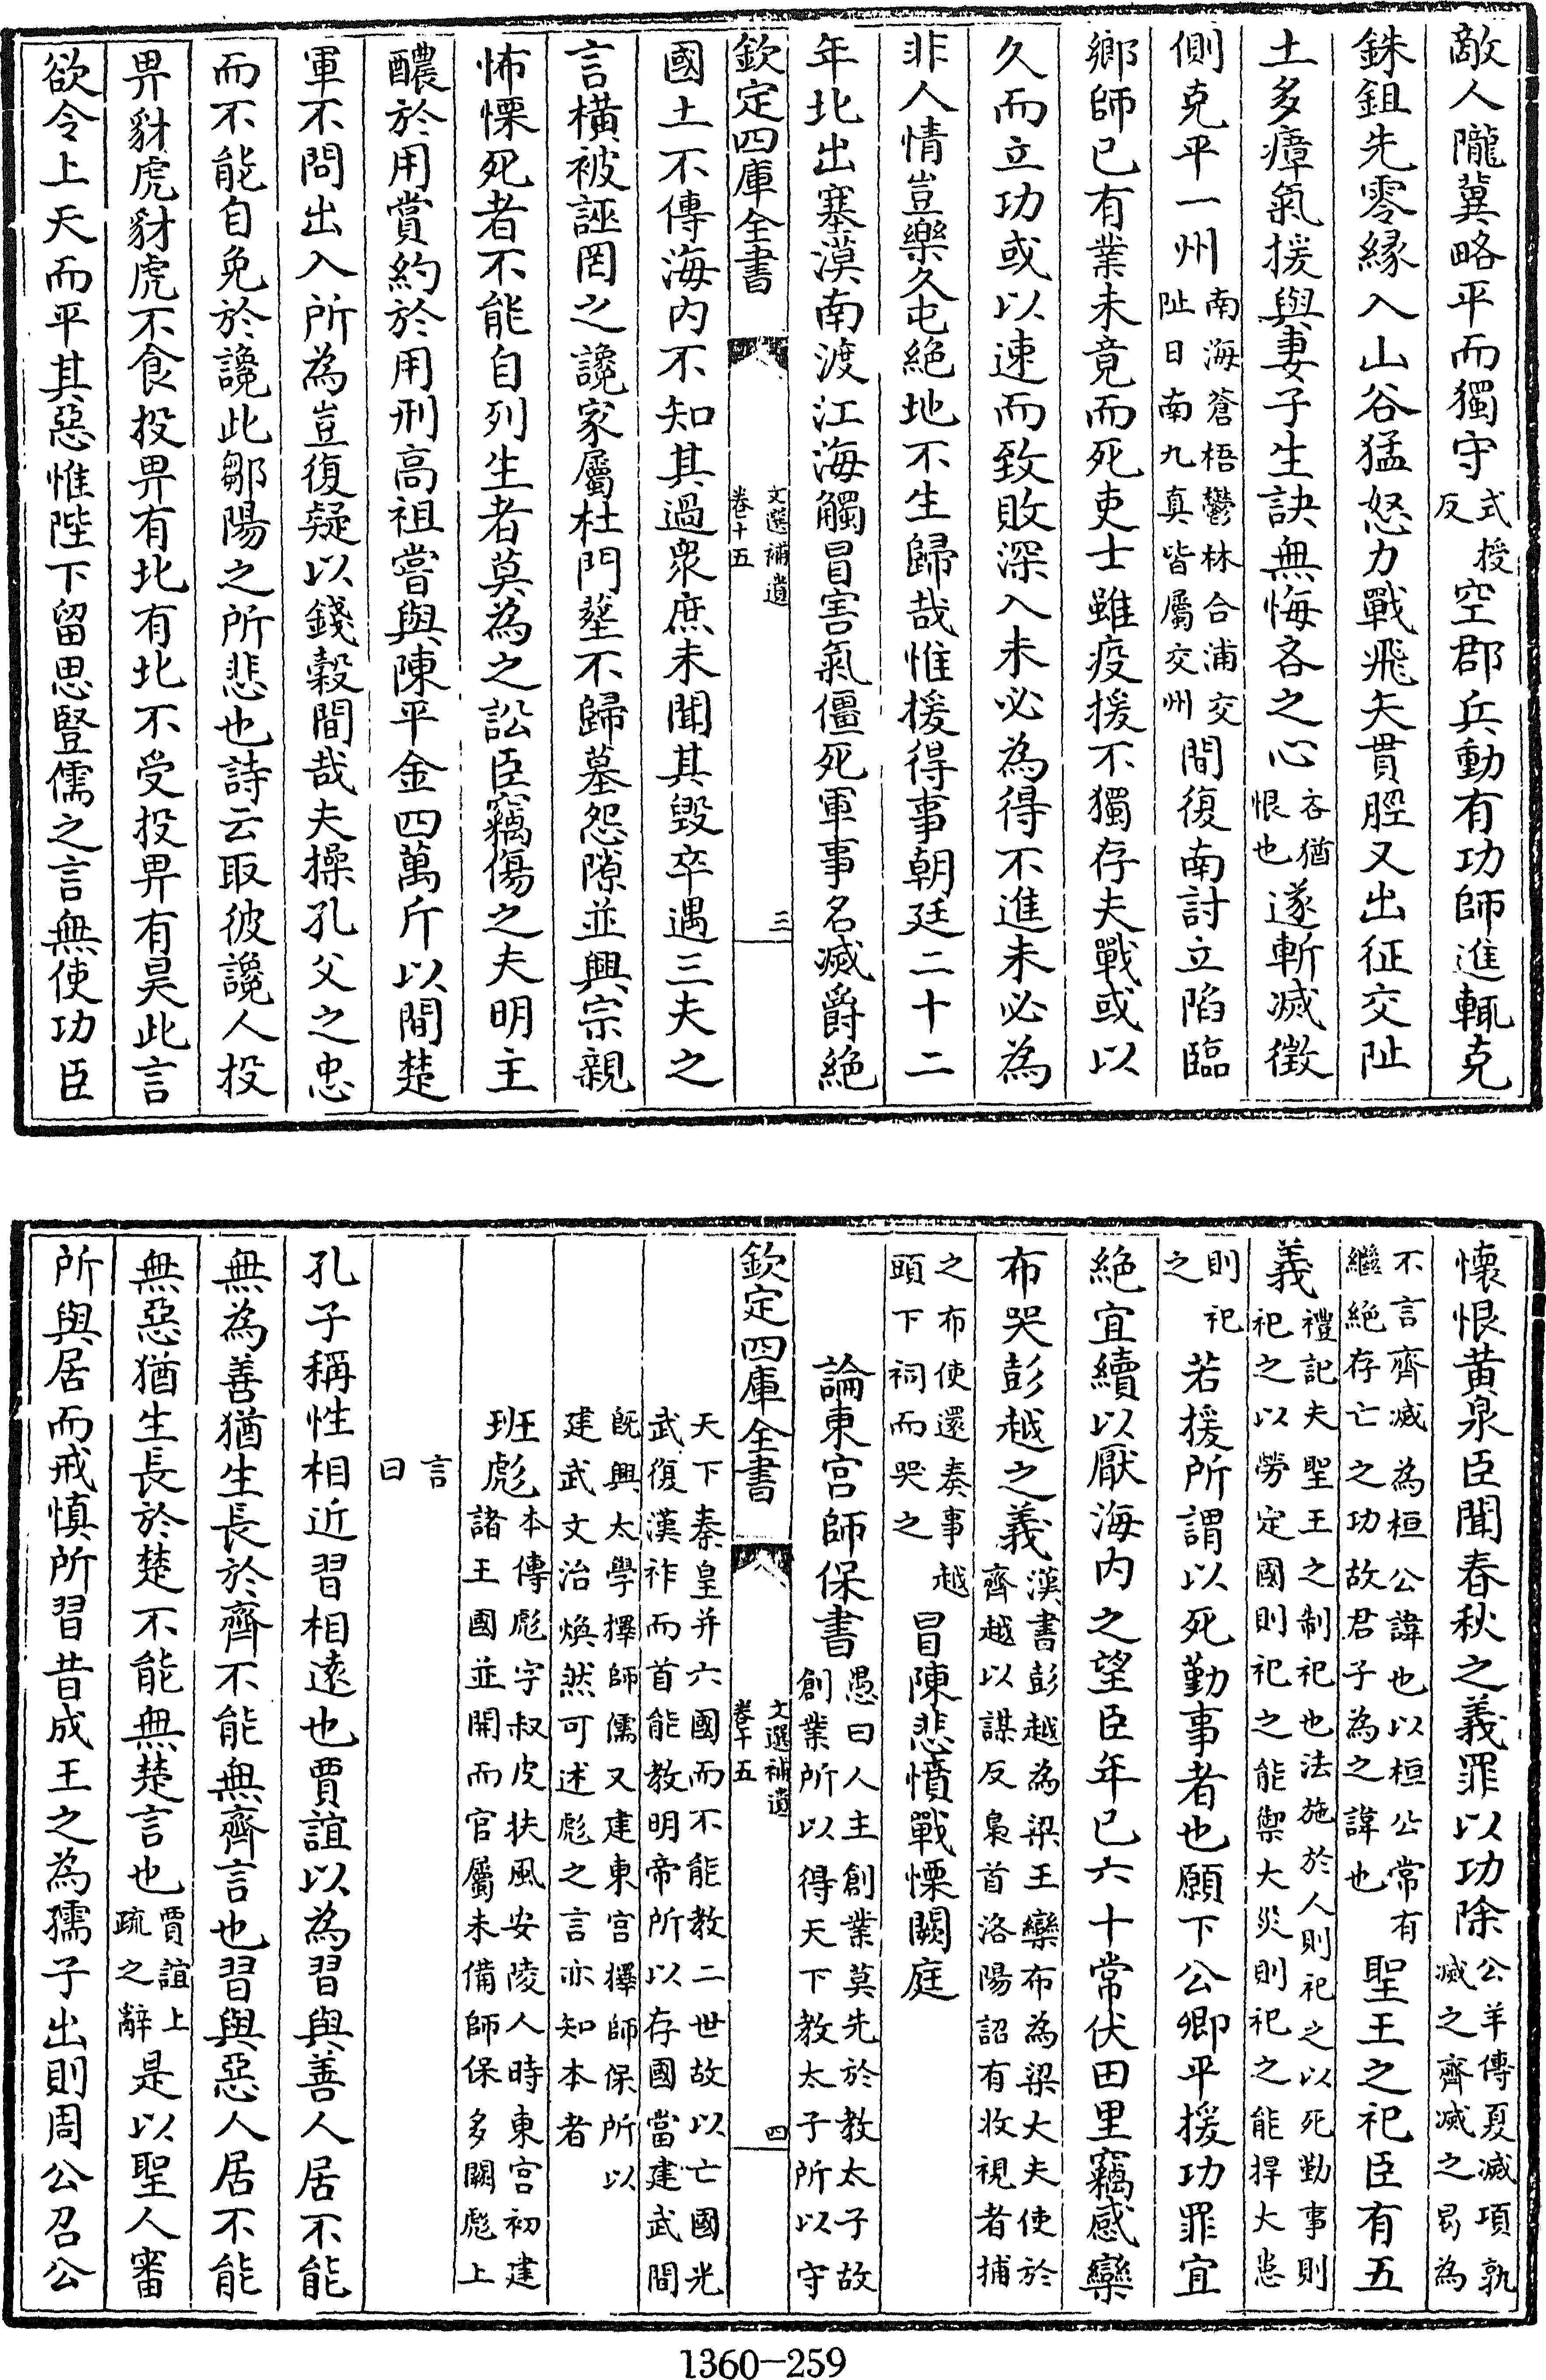 敵人隴冀略平而獨守式授反空郡兵動有功師進輒克
銖鉏先零緣入山谷猛怒力戰飛矢貫脛又出征交阯
土多瘴氣援與妻子生訣無悔吝之心吝猶恨也遂斬滅徵
側克平一州南海蒼梧鬱林合浦交阯日南九真皆屬交州間復南討立陷臨
鄉師已有業未竟而死吏士雖疫援不獨存夫戰或以
久而立功或以速而致敗深入未必為得不進未必為
非人情豈樂久屯絕地不生歸哉惟援得事朝廷二十二
年北出塞漠南渡江海觸冒害氣僵死軍事名滅爵絕
欽定四庫全書 文選補遺卷十五 三
國土不傳海內不知其過衆庶未聞其毀卒遇三夫之
言橫被誣罔之讒家屬杜門塟不歸墓怨隙並興宗親
怖慄死者不能自列生者莫為之訟臣竊傷之夫明主
醲於用賞約於用刑高祖嘗與陳平金四萬斤以間楚
軍不問出入所為豈復疑以錢穀間哉夫操孔父之忠
而不能自免於讒此鄒陽之所悲也詩云取彼讒人投
畀豺虎豺虎不食投畀有北有北不受投畀有昊此言
欲令上天而平其惡惟陛下留思豎儒之言無使功臣
懷恨黃泉臣聞春秋之義罪以功除公羊傳夏滅項孰滅之齊滅之曷為
不言齊滅為桓公諱也以桓公常有繼絕存亡之功故君子為之諱也聖王之祀臣有五
義禮記夫聖王之制祀也法施於人則祀之以死勤事則祀之以勞定國則祀之能禦大災則祀之能捍大患
則祀之若援所謂以死勤事者也願下公卿平援功罪宜
絕宜續以厭海內之望臣年已六十常伏田里竊感欒
布哭彭越之義漢書彭越為梁王欒布為梁大夫使於齊越以謀反梟首洛陽詔有收視者捕
之布使還奏事越頭下祠而哭之冒陳悲憤戰慄闕庭
論東宮師保書愚曰人主創業莫先於教太子故創業所以得天下教太子所以守
欽定四庫全書 文選補遺卷十五 四
天下秦皇并六國而不能教二世故以亡國光武復漢祚而首能教明帝所以存國當建武間
既興太學擇師儒又建東宮擇師保所以建武文治煥然可述彪之言亦知本者
班彪本傳彪字叔皮扶風安陵人時東宮初建諸王國並開而官屬未備師保多闕彪上
言曰
孔子稱性相近習相遠也賈誼以為習與善人居不能
無為善猶生長於齊不能無齊言也習與惡人居不能
無惡猶生長於楚不能無楚言也賈誼上疏之辭是以聖人審
所與居而戒慎所習昔成王之為孺子出則周公召公
1360-259